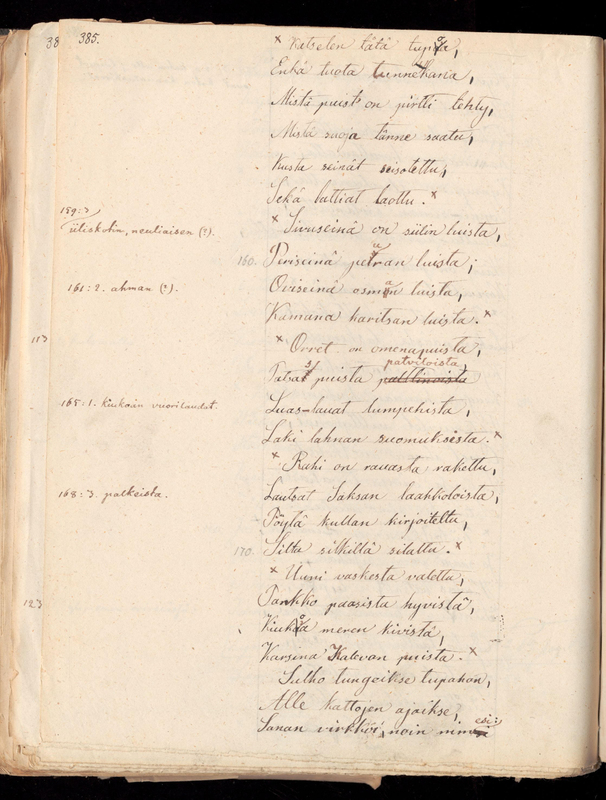 38 385.
× Katselen tätä tupoa,
Enkä tuota tunnekana,
Mistä puist' on pirtti tehty,
Mistä suoja tänne saatu,
Kusta seinät seisotettu,
Sekä lattiat laottu. ×
159:3
ütiskotin, neuliaisen (?).
× Sivuseinä on siilin luista,
160. Periseinä peuran luista;
161:2. ahman (?). Oviseinä osman luista,
Kamana karitsan luista. ×
113
× Orret on omenapuista,
patviloista
Patsas puista
165:1. Kiukoan vuorilaudat. Luas-lauat lumpehista,
Laki lahnan suomuksesta. ×
× Rahi on rauasta rakettu,
168:3. palkeista. Lautsat Saksan laakkoloista,
Pöytä kullan kirjoiteltu,
170. Silta silkillä silattu. ×
× Uuni vaskesta valettu,
123
Pankko paasista hyvistä,
Kiukoa meren kivistä,
Karsina Kalevan puista. ×
Sulho tungeikse tupahan,
Alle kattojen ajaikse,
esi:
Sanan virkkoi, noin nimesi